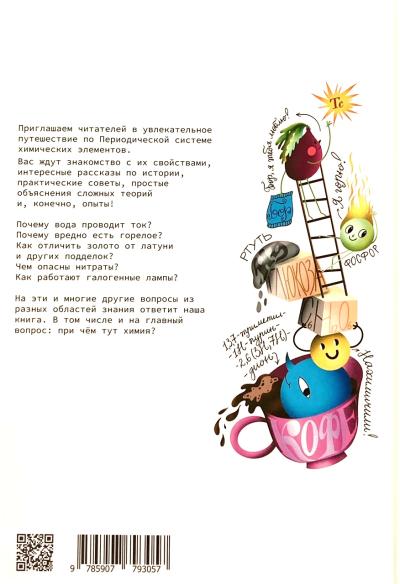 Приглашаем читателей в увлекательное
путешествие по Периодической системе
химических элементов.
Вас ждут знакомство с их свойствами,
интересные рассказы по истории,
практические советы, простые
объяснения сложных теорий
и, конечно, опыты!
Почему вода проводит ток?
Почему вредно есть горелое?
Как отличить золото от латуни
и других подделок?
Чем опасны нитраты?
Как работают галогенные лампы?
На эти и многие другие вопросы из
разных областей знания ответит наша
книга. В том числе и на главный
вопрос: при чём тут химия?
Tc
Бор, я тебя люблю!
Я горю!
РТУТЬ
ФОСФОР
1,3,7-триметил-
-1H-пурин-
-2,6(3H,7H)-
-дион
Нахимичили!
КОФЕ
9 785907 793057